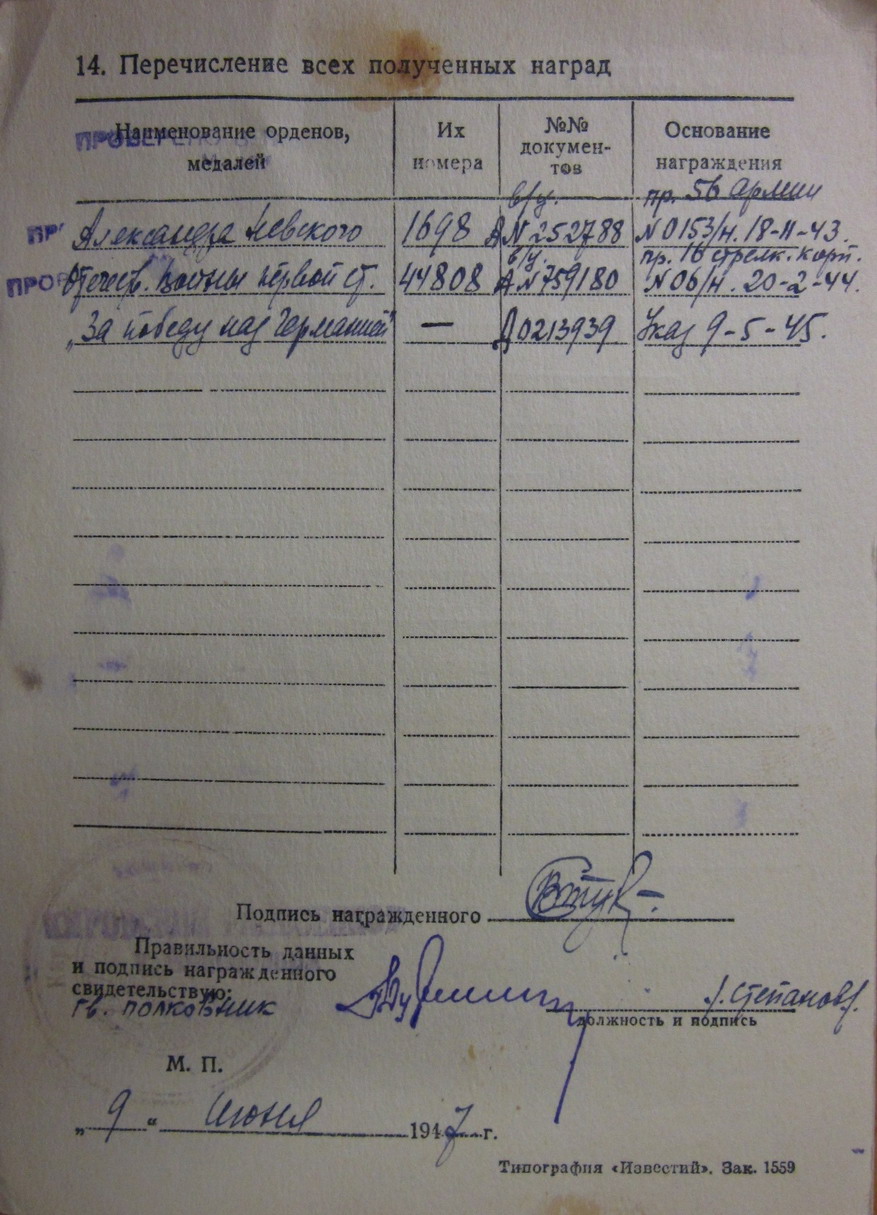 14. Перечисление всех полученных наград
Наименование орденов, медалей
Их номера
№№ документов
Основание награждения
ПРОВЕРЕНО
в/у. пр. 56 Армии
Александра Невского 1698 А N 252788 N 0153/н. 18-11-43.
в/у. пр. 16 стрелк. корп.
Отечеств. войны первой ст. 44808 А N 759180 N 06/н. 20-2-44.
„За победу над Германией" — Д 0213939 Указ 9-5-45.
Подпись награжденного
Правильность данных
и подпись награжденного
свидетельствую:
гв. полковник /.Степанов/.
должность и подпись
М. П.
„ 9 “ июня 1947 г.
Типография «Известий». Зак. 1559